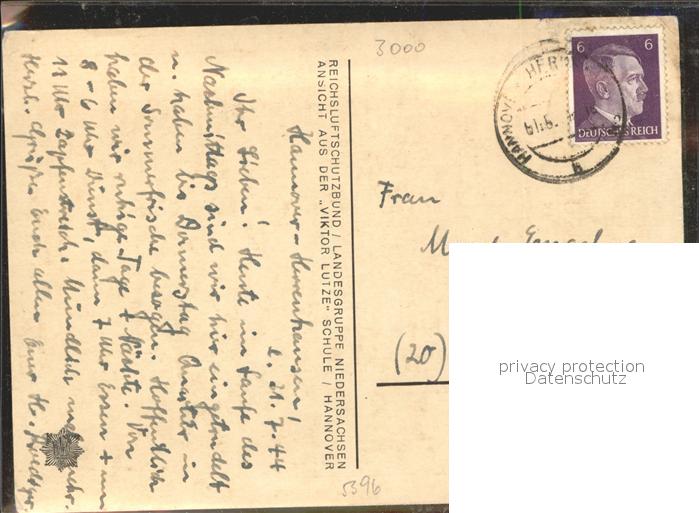 3000
6 6
DEUTSCHES REICH
HANNOVER
Frau
(20)
privacy protection
Datenschutz
REICHSLUFTSCHUTZBUND / LANDESGRUPPE NIEDERSACHSEN
ANSICHT AUS DER „VIKTOR LUTZE" SCHULE / HANNOVER
Hannover-Herrenhausen!
d. 31.7.44
Ihr Lieben! Heute im Laufe des
Nachmittags sind wir hier eingetrudelt
u. haben bis Donnerstag Quartier in
der Sommerfrische bezogen. Hoffentlich
haben wir ruhige Tage + Nächte. Von
8 - 6 Uhr Dienst, dann 7 Uhr Essen + um
11 Uhr Zapfenstreich. Mündlich mehr.
Herzl. Grüße Euch allen Euer H.
5396